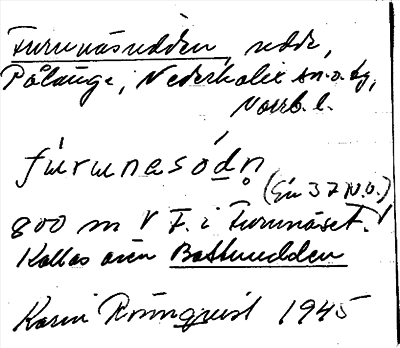 Furunäsudden udde,
Pålänge, Nederkalix sn. o. tg,
Norrb. l.
fúrunasód̥n
(Gen 37 N.O.)
800 m V F. i Furunäset.
Kallas även Båtsudden
Karin Rönnquist 1945